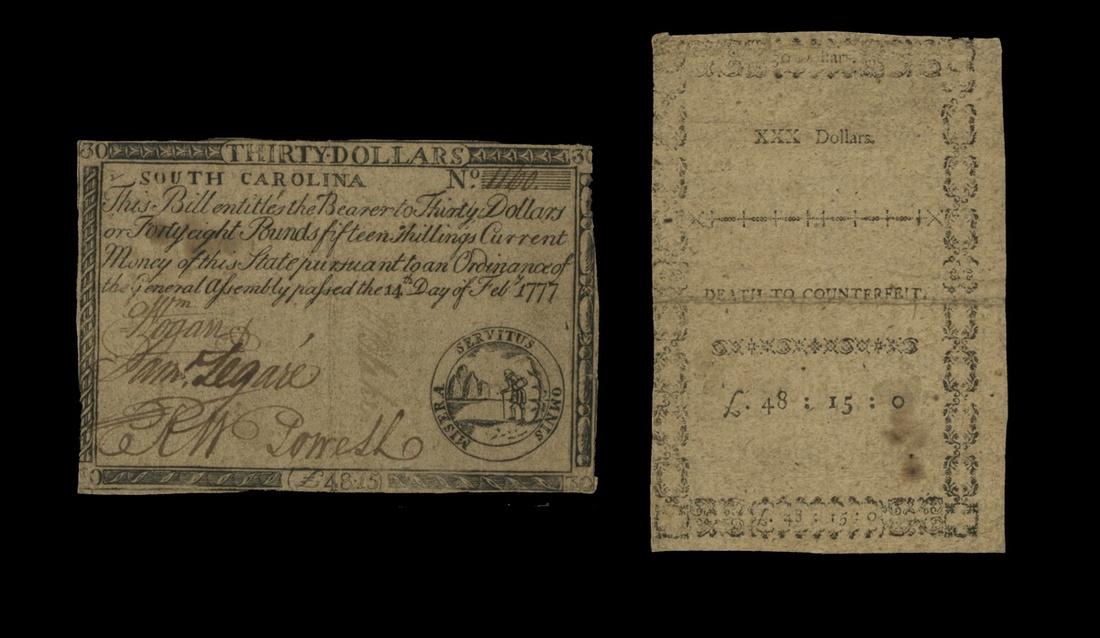 30 THIRTY·DOLLARS 30
SOUTH CAROLINA No. 1100.
This Bill entitles the Bearer to Thirty Dollars
or Forty eight Pounds fifteen Shillings Current
Money of this State pursuant to an Ordinance of
the General Assembly passed the 14th Day of Feby. 1777
Wm
Logan
Saml. Legaré
R W Powell
MISERA SERVITUS OMNIS
£48·15 30
30 Dollars.
XXX Dollars.
DEATH TO COUNTERFEIT.
£. 48 : 15 : 0
£. 48 : 15 : 0